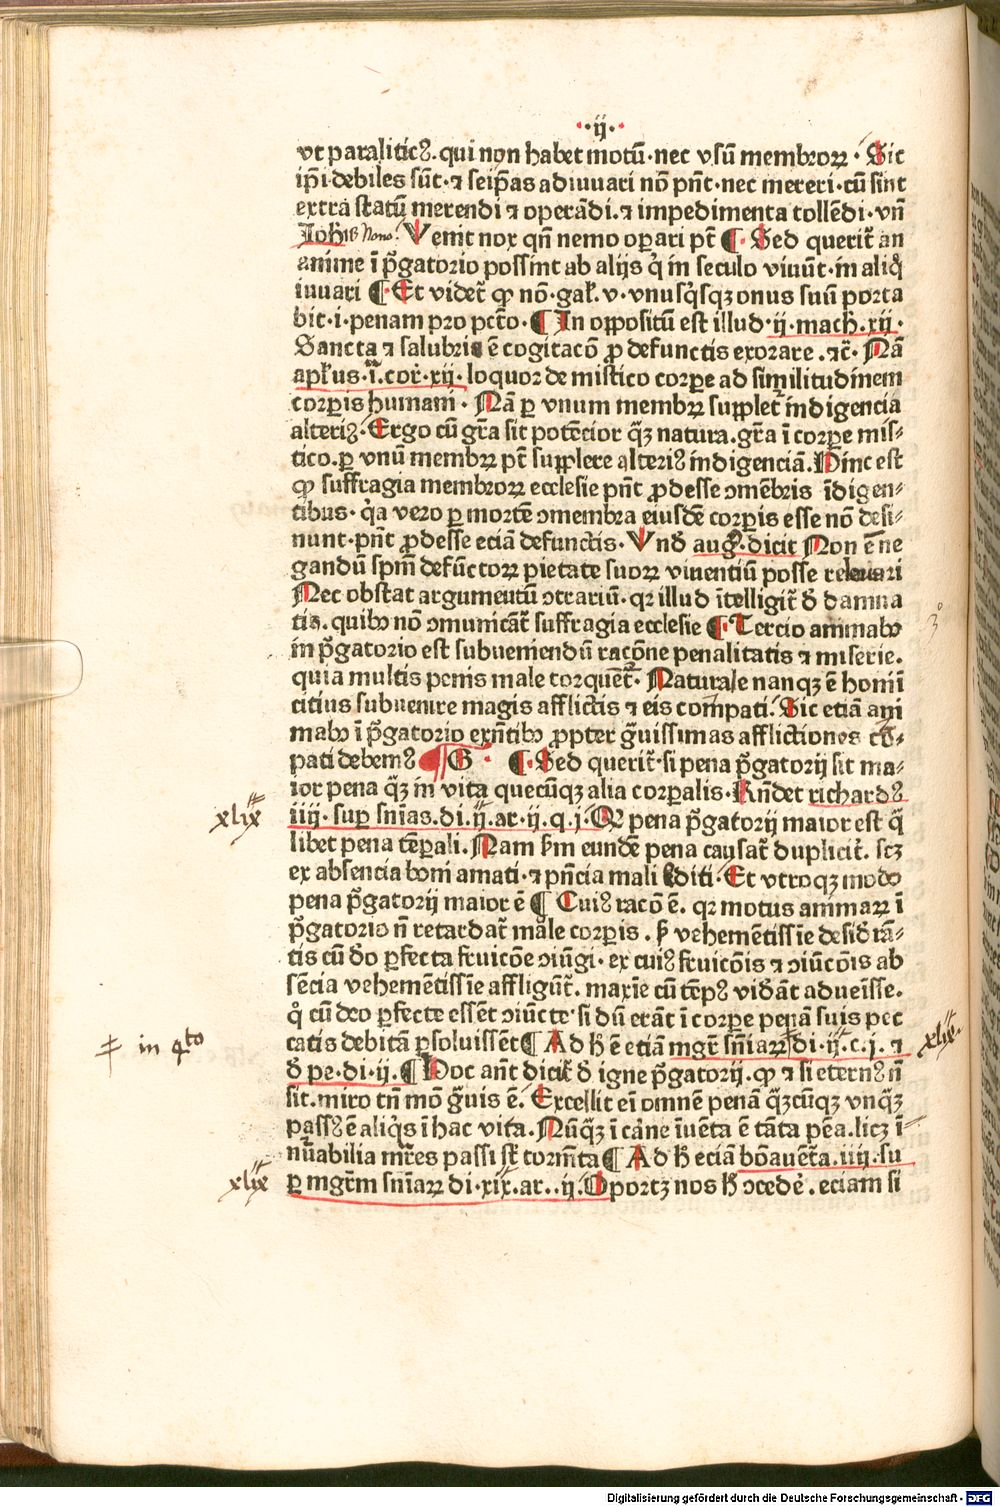 ·ij·
vt paralitic9. qui non habet motū·nec vsū membroꝝ· Sic
ip̄i·debiles sūt·⁊ seip̄as adiuuari nō pn̄t·nec mereri·cū sint
extra statū merendi ⁊ operādi.⁊ impedimenta tollēdi·vn̄
Joh̄is Nono. Venit nox qn̄ nemo oꝑari pt̄ ¶ Sed querit̄ an
anime ī p̄gatorio possint ab alijs q̇ in seculo viuūt·in aliq̊
iuuari ¶ Et videt̄ ꝙ nō·gal̄·v·vnusq̇sqꝫ onus suū porta
bit·i·penam pro pcc̄to·¶ In oꝓpositū est illud·ij·mach̄·xij·
Sancta ⁊ salubris ē cogitacō ꝓ defunctis exorare.⁊c̄· Nā
apl̄us·j·cor̄·xij·loquor de mistico corꝑe ad similitudinem
corꝑis humani· Nā ꝑ vnum membꝝ supplet̄ indigencia
alteri9·Ergo cū gr̄a sit potēcior q̄ꝫ natura.gr̄a ī corꝑe mis⸗
tico.ꝑ vnū membꝝ pt̄ supplere alteri9 indigenciā.Hinc est
ꝙ suffragia membroꝝ ecclesie pn̄t ꝓdesse ↄmēbris īdigen⸗
tibus·q̇a vero ꝑ mortē ↄmembra eiusdē corꝑis esse nō desi⸗
nunt·pn̄t ꝓdesse eciā defunctis·Vnd̄ aug9·dicit Non ē ne
gandū sp̄m defūctoꝝ pietate suoꝝ viuentiū posse releuari
Nec obstat argumentū ↄtrariū·qꝛ illud ītelligit̄ d̄ damna
tis.quibꝫ nō ↄmunicāt̄ suffragia ecclesie ¶ Tercio animabꝫ
in p̄gatorio est subueniendū racōne penalitatis ⁊ miserie.
quia multis penis male torquent̄·Naturale nanqꝫ ē homī
citius subuenire magis afflictis ⁊ eis compati·Sic etiā ani
mabꝫ ī p̄gatorio exn̄tibꝫ ꝓpter g̊uissimas afflictiones cō⸗
pati debem9 ¶ G · ¶ Sed querit̄·si pena p̄gatorij sit ma⸗
ior pena q̄ꝫ in vita quecūqꝫ alia corꝑalis·Rn̄det richard9
iiij·suꝑ sn̄ias.di.ij.ar·ij.q.j·Q pena p̄gatorij maior est q̄
libet pena tēꝑali.Nam s̄m eundē pena causat̄ duplicit̄·scꝫ
ex absencia boni amati·⁊ pn̄cia mali oditi·Et vtroqꝫ modo
pena p̄gatorij maior ē ¶ Cui9 racō ē. qꝛ motus animaꝝ ī
p̄gatorio n̄ retardat̄ male corꝑis. s̄ vehemētissīe desid̄rā⸗
tis cū d̄o ꝑfecta fruicōe ↄiūgi·ex cui9 fruicōis ⁊ ↄiūcōis ab
sēcia vehemētissīe affligūt̄. maxīe cū tēp9 vidāt adueīsse.
q̊ cū deo ꝑfecte essēt ↄiūcte·si dū erāt ī corꝑe penā suis pec
catis debitā ꝑsoluissēt ¶ Ad h̄ ē etiā mgr̄ sn̄iaꝝ di·ij·c.j.⁊
d̄ pe·di·ij.¶ Hoc ant̄ dicit̄ d̄ igne p̄gatorij.ꝙ ⁊ si etern9 n̄
sit.miro tn̄ mō g̊uis ē. Excellit eī omnē penā q̄ꝫcūqꝫ vnq̄ꝫ
pass9 ē aliq̇s ī hac vita.Nūq̄ꝫ ī carne īuēta ē tāta pēa.licꝫ ī⸗
nūabilia mr̄es passi st̄ torm̄ta ¶ Ad h̄ eciā bōauēt̄a.iiij·su
ꝑ mgr̄m sn̄iaꝝ di·xix·ar..ij.Oportꝫ nos h̄ ↄcede·eciam si
3°
xlix
in q̊to
xlix.
xlix
Digitalisierung gefördert durch die Deutsche Forschungsgemeinschaft · DFG